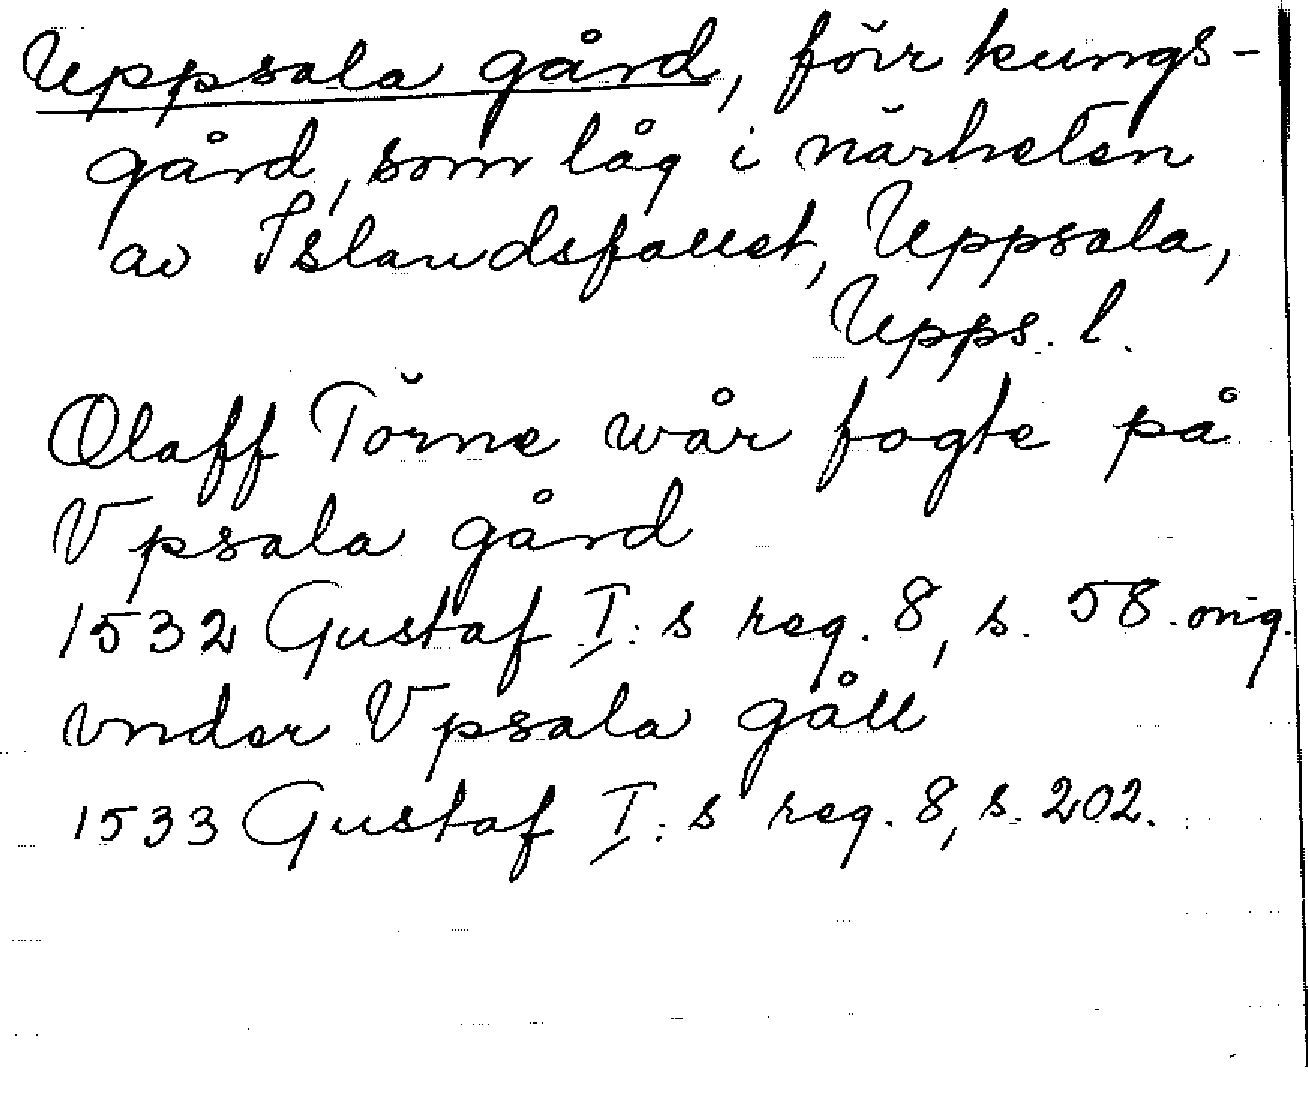 Uppsala gård, förr kungs-
gård, som låg i närheten
av Islandsfallet, Uppsala,
Upps. l.
Olaff Törne wår fogte på
Vpsala gård
1532 Gustaf I:s reg. 8, s. 58. orig.
vnder Vpsala gåll
1533 Gustaf I:s reg. 8, s. 202.